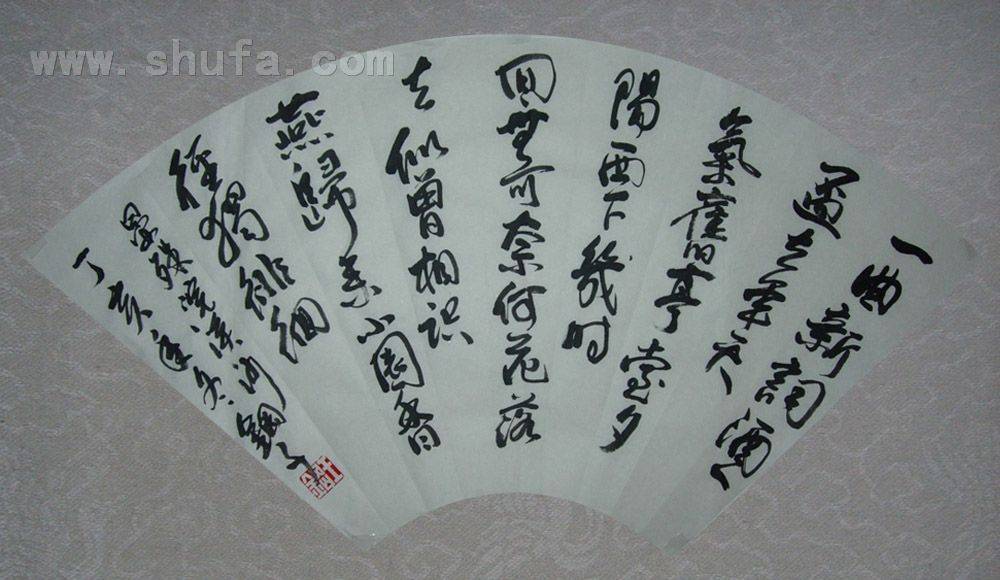 www.shufa.com
一曲新詞酒
一盃去年天
氣舊亭臺夕
陽西下幾时
回無可奈何花落
去似曾相识
燕歸来小園香
徑獨徘徊
晏殊浣溪沙
丁亥年冬